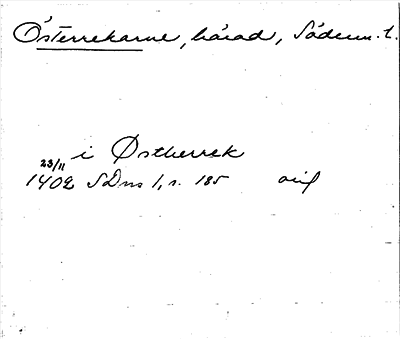 Österrekarne, härad, Söderm. l.
i Østherrek
23/11
1402 SDns 1, s. 185 avs